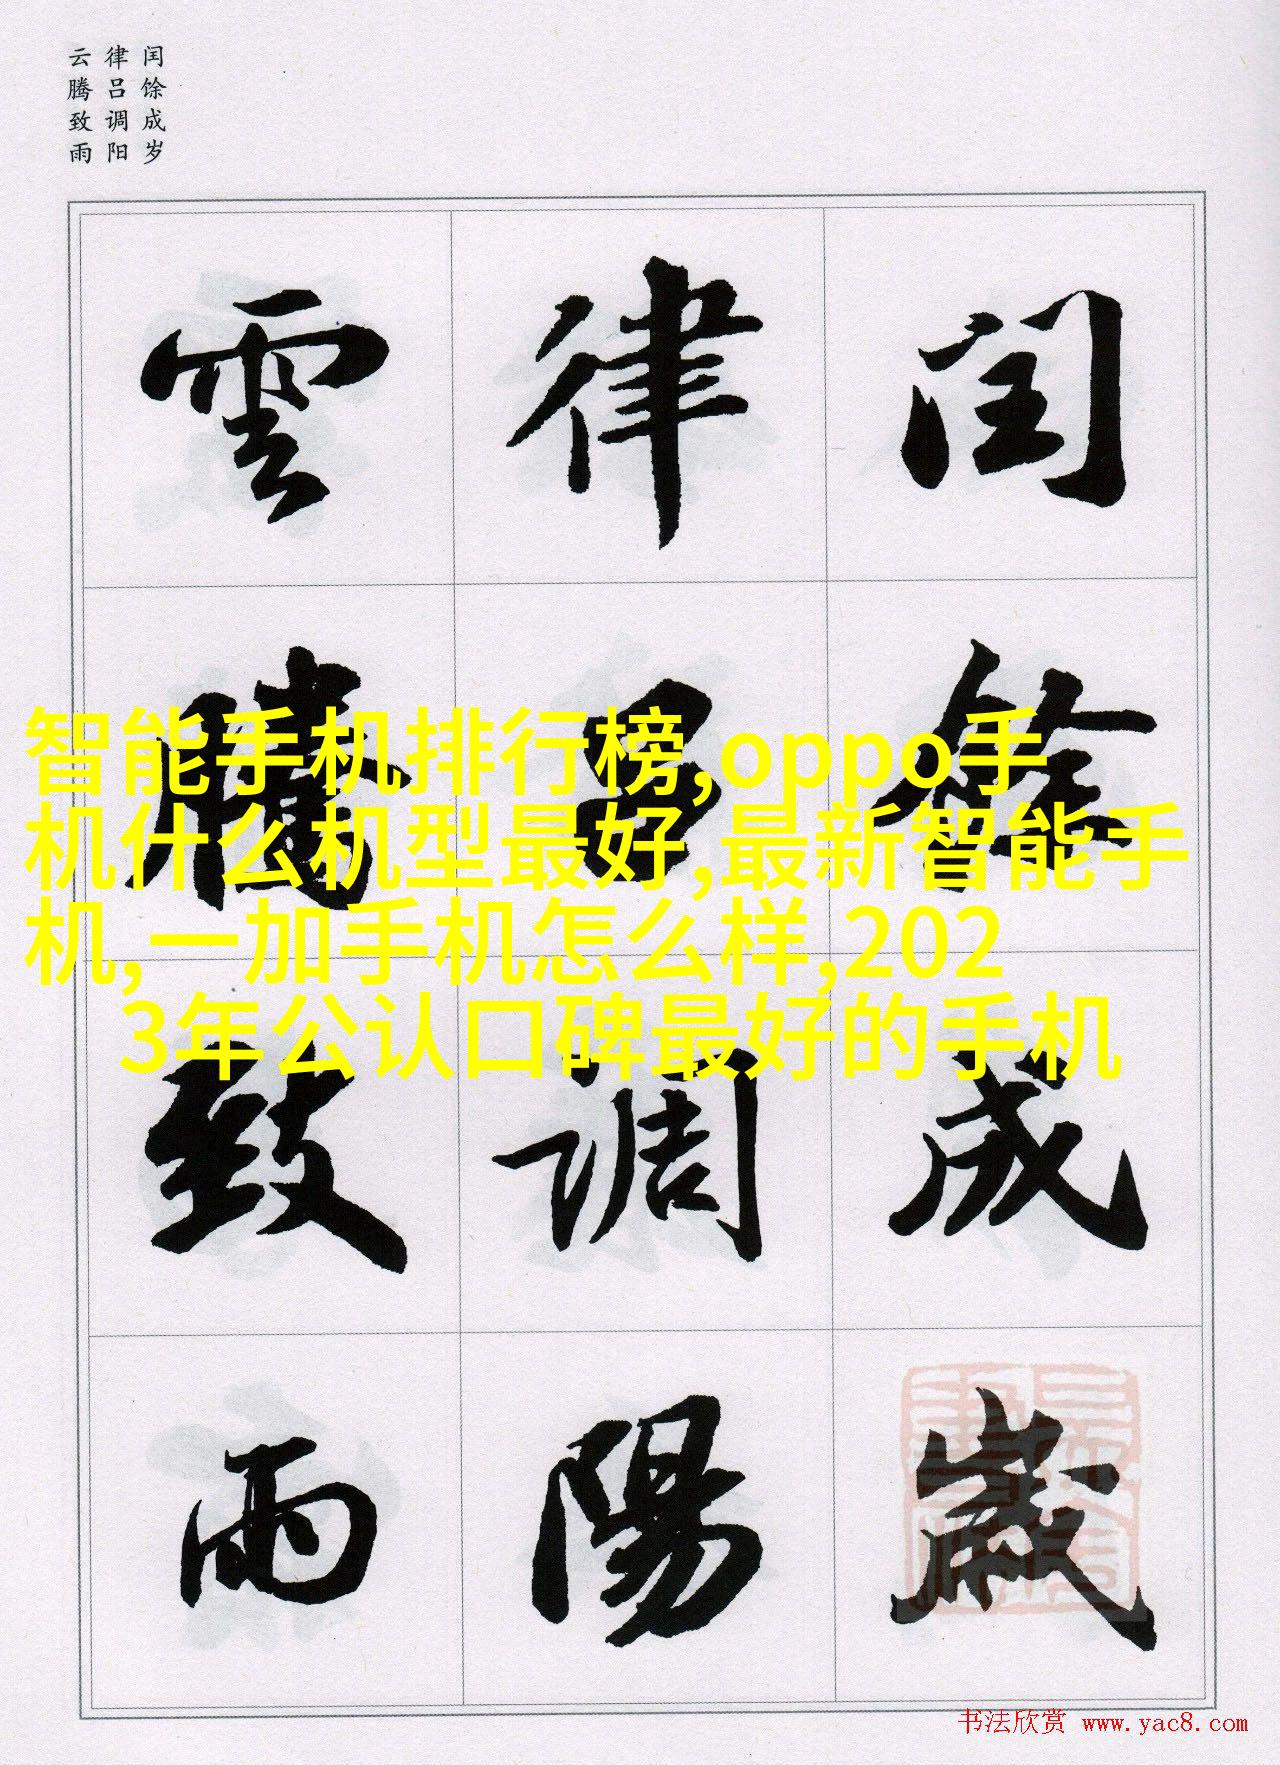 闰馀成岁
律吕调阳
云腾致雨
闰馀成歲
律吕調陽
雲騰致雨
智能手机排行榜,oppo手
机什么机型最好,最新智能手
机,一加手机怎么样,202
3年公认口碑最好的手机
书法欣赏 www.yac8.com